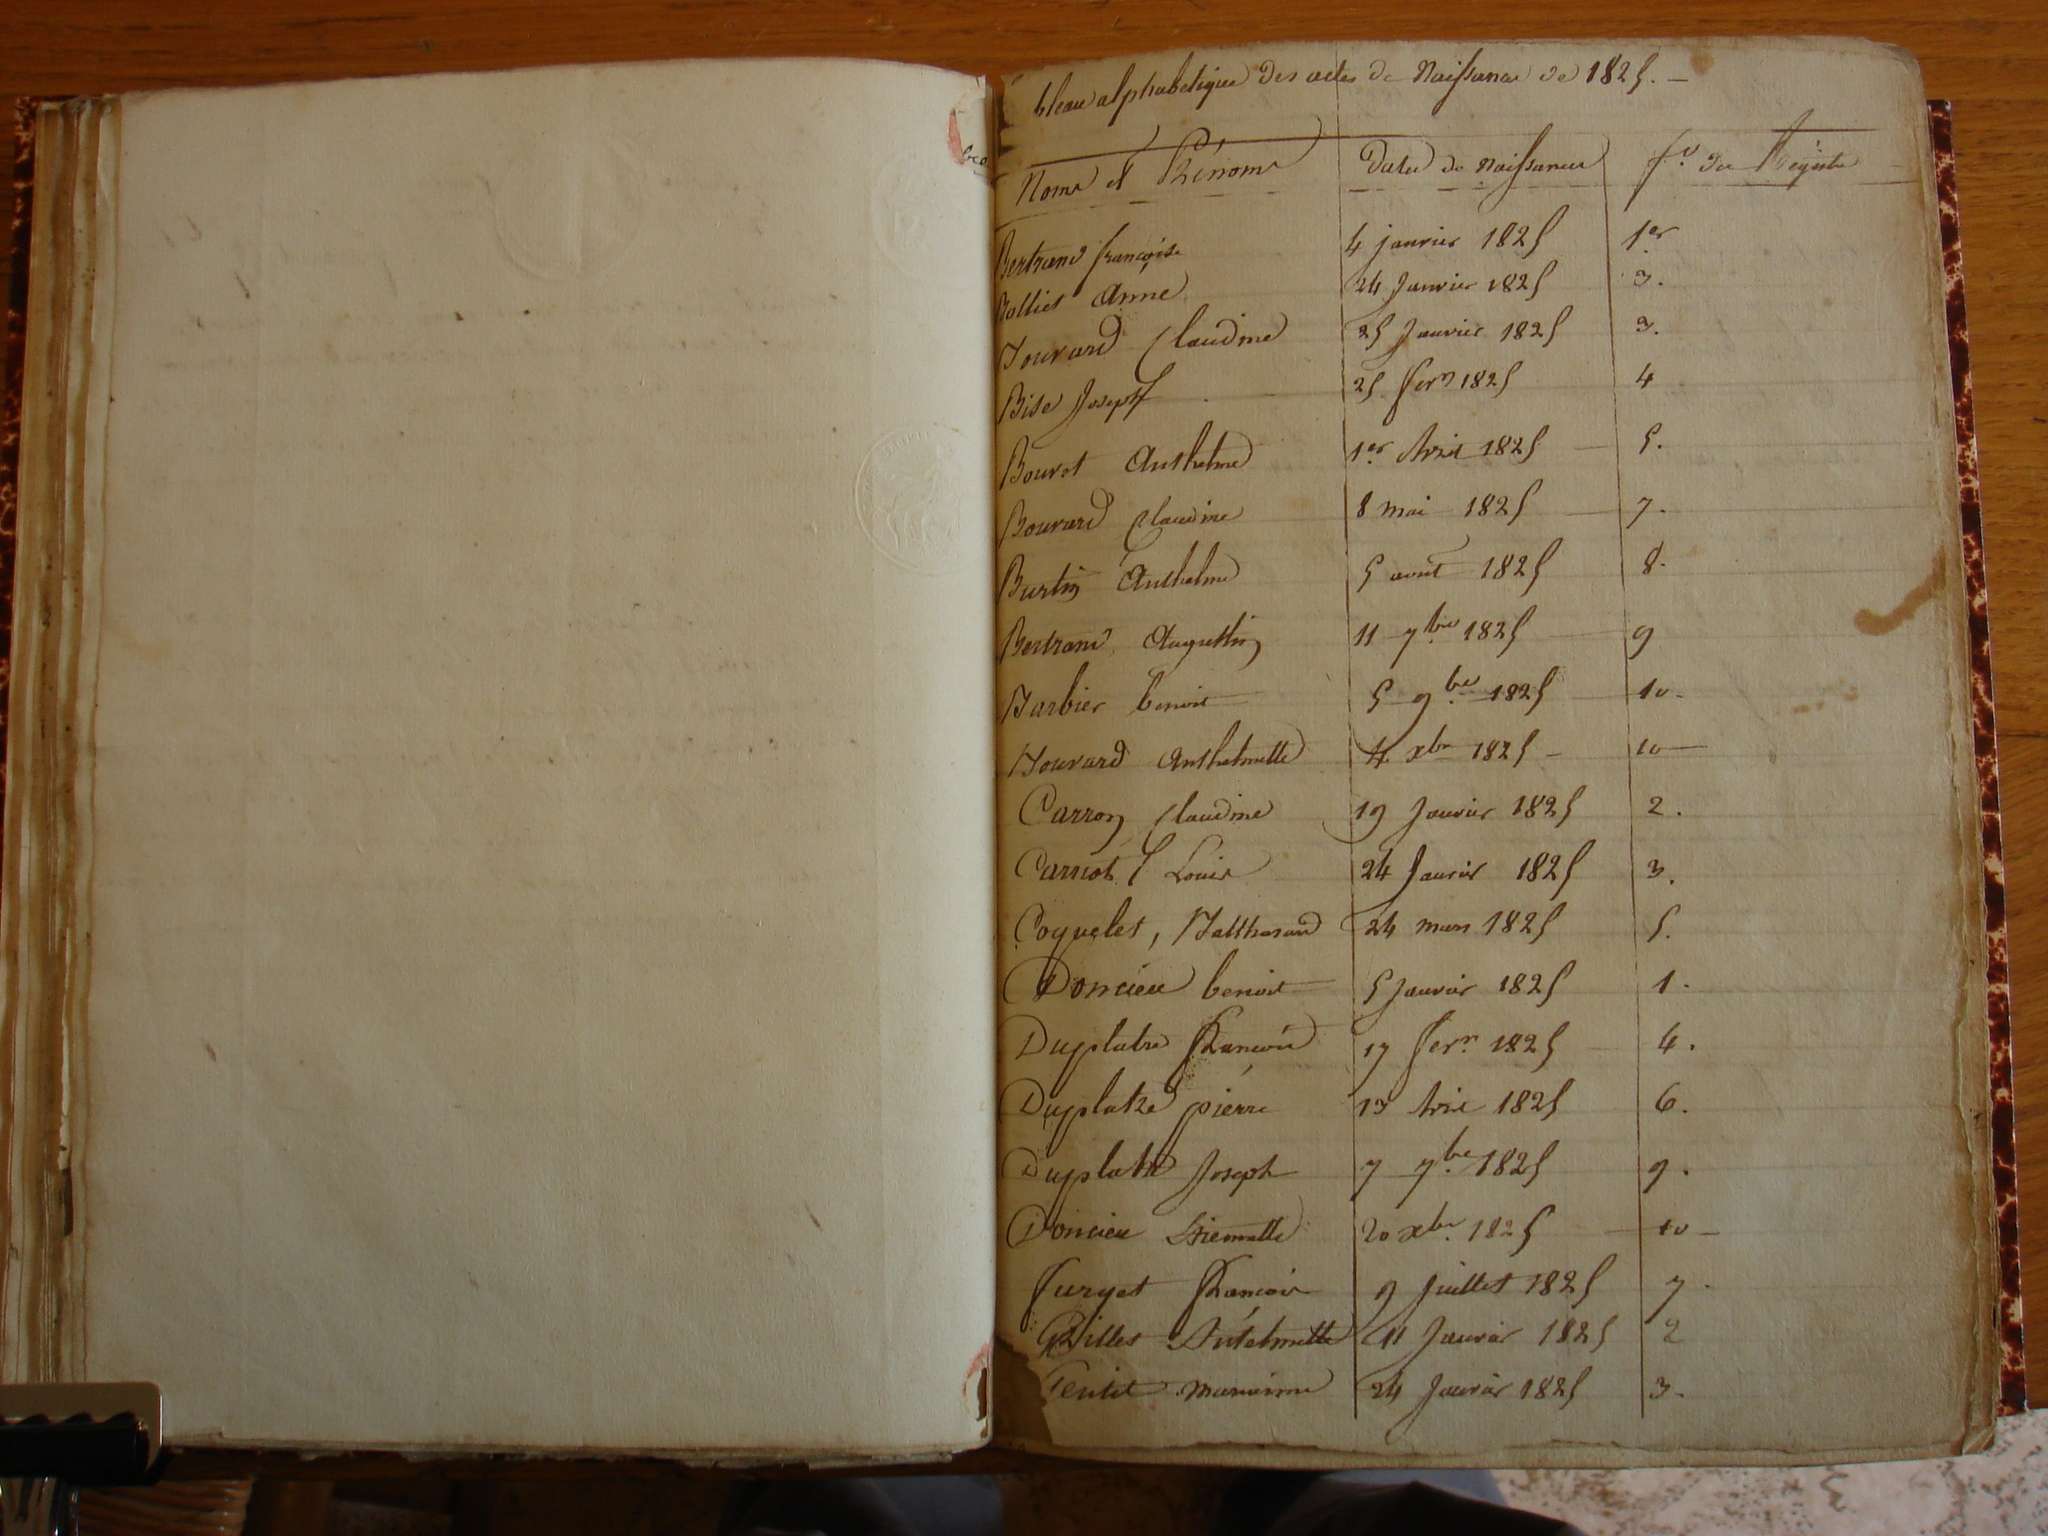 bleau alphabétique des actes de Naissance de 1825. —
Noms et Prénoms Dates de Naissances f.º du Régistre
Bertrand françoise 4 janvier 1825 1er
Bolliet Anne 24 Janvier 1825 3.
Bouvard Claudine 25 Janvier 1825 3.
Bise Joseph 25 fevr 1825 4
Bouvet Anthelme 1er Avril 1825 5.
Bouvard Claudine 8 mai 1825 7.
Burtin Anthelme 5 aout 1825 8.
Bertrand Augustin 11 7bre 1825 9
Barbier benoit 5 9bre 1825 10.
Bouvard Anthelmette 4 xbre 1825 10
Carron Claudine 19 Janvier 1825 2.
Carnot Louis 24 Janvier 1825 3.
Coquelet, Balthasard 24 mars 1825 5.
Doncieu benoit 5 Janvier 1825 1.
Duplatre François 17 fevr. 1825 4.
Duplatre pierre 13 Avril 1825 6.
Duplatre Joseph 7 7bre 1825 9.
Doncieu 20 xbre. 1825 10
Furget François 9 Juillet 1825 7.
Antelmette 11 Janvier 1825 2
24 Janvier 1825 3.